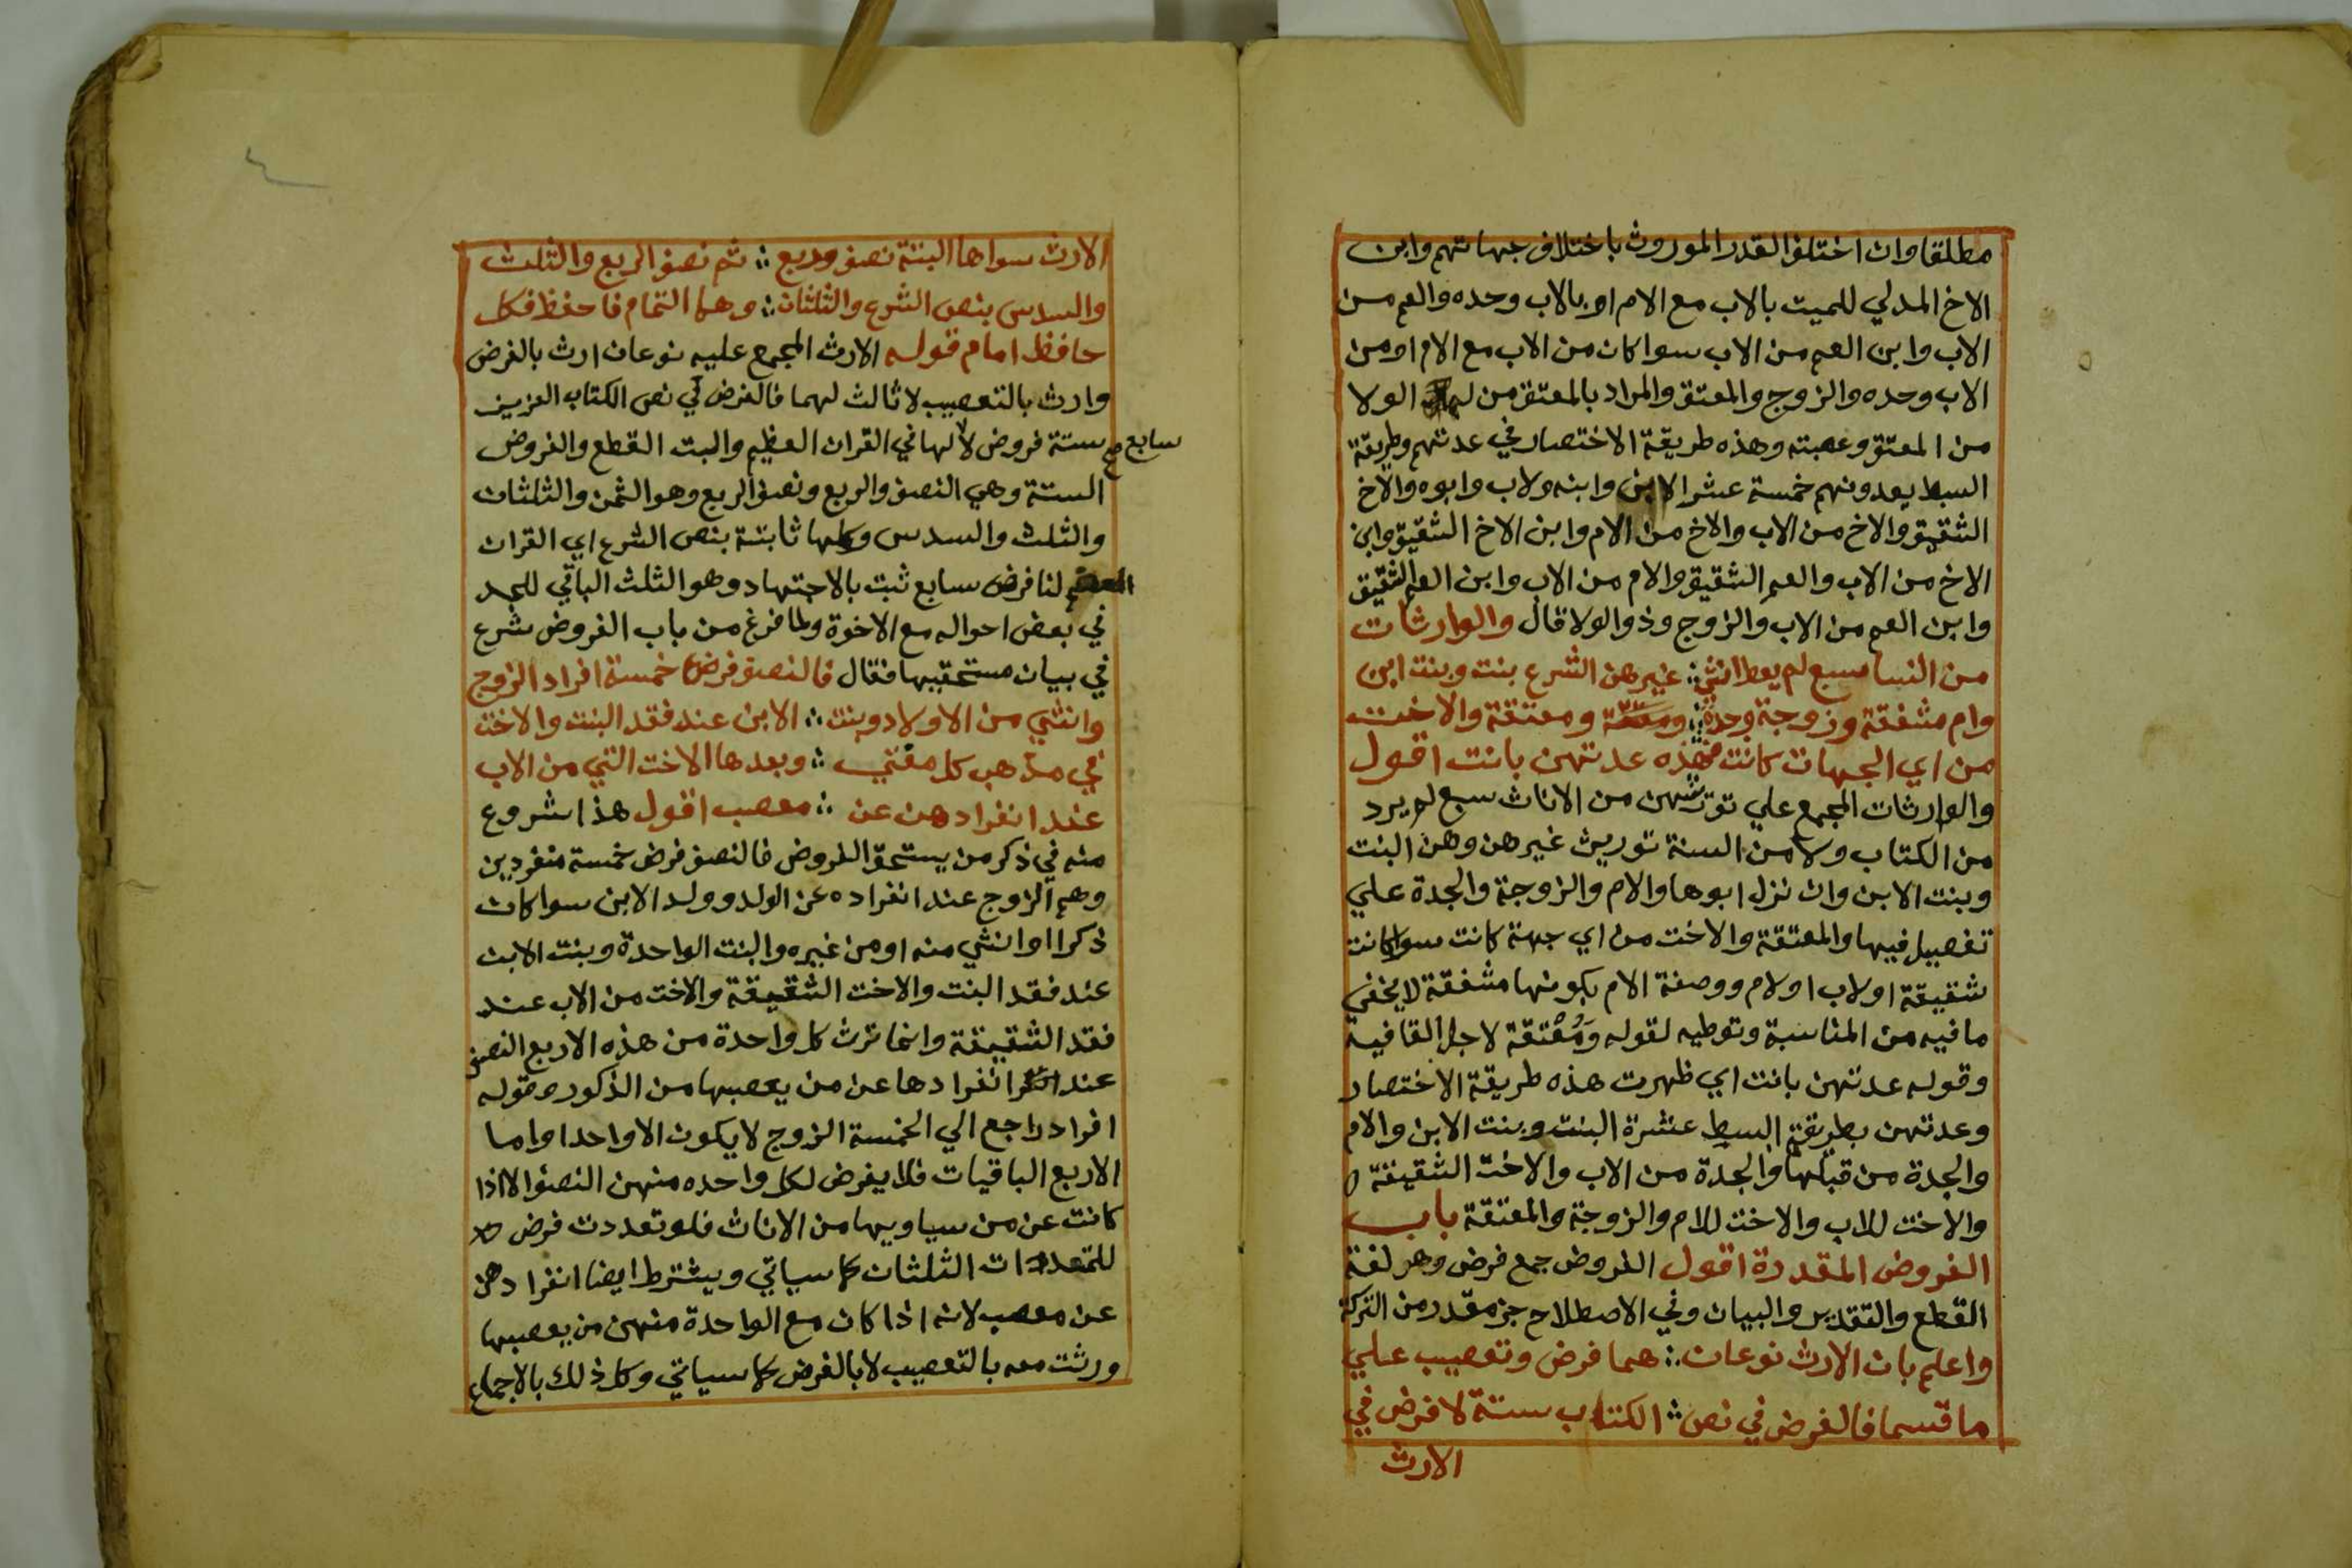 مطلقا وان اختلف القدر الموروث باختلاف جهاتهم وابن
الاخ المدلي للميت بالاب مع الام او بالاب وحده والعم من
الاب وابن العم من الاب سوا كان من الاب مع الام او من
الاب وحده والزوج والمعتق والمراد بالمعتق من له الولا
من المعتق وعصبته وهذه طريقة الاختصار في عدتهم وطريقة
البسط يعدونهم خمسة عشر الابن وابنه ولاب وابوه والاخ
الشقيق والاخ من الاب والاخ من الام وابن الاخ الشقيق وابن
الاخ من الاب والعم الشقيق والام من الاب وابن العم الشقيق
وابن العم من الاب والزوج وذو الولا قال والوارثات
من النسا سبع لم يعط انثي ∴ غيرهن الشرع بنت وبنت ابن
وام مشفقة وزوجة وجدة ∴ ومعتقة والاخت
من اي الجهات كانت فهذه عدتهن بانت اقول
والوارثات المجمع علي توريثهن من الاناث سبع لم يرد
من الكتاب ولا من السنة توريث غيرهن وهن البنت
وبنت الابن وان نزل ابوها والام والزوجة والجدة علي
تفصيل فيها والمعتقة والاخت من اي جهة كانت سوا كانت
شقيقة او لاب او لام ووصفة الام بكونها مشفقة لا يخفي
ما فيه من المناسبة وتوطيه لقوله ومُعْتقة لاجل القافية
وقوله عدتهن بانت اي ظهرت هذه طريقة الاختصار
وعدتهن بطريقة البسط عشرة البنت وبنت الابن والام
والجدة من قبلها والجدة من الاب والاخت الشقيقة
والاخت للاب والاخت للام والزوجة والمعتقة باب
الفروض المقدرة اقول الفروض جمع فرض وهو لغة
القطع والتقدير والبيان وفي الاصطلاح جز مقدر من التركة
واعلم بان الارث نوعان ∴ هما فرض وتعصيب علي
ما قسما فالفرض في نص ∴ الكتاب ستة لا فرض في
الارث
٤
الارث سواها البتة نصف وربع ∴ ثم نصف الربع والثلث
والسدس بنص الشرع والثلثان ∴ وهما التمام فاحفظ فكل
حافظ امام قوله الارث المجمع عليه نوعان ارث بالفرض
وارث بالتعصيب لا ثالث لهما فالفرض في نص الكتاب العزيز
ستة فروض لا سابع لها في القران العظيم والبت القطع والفروض
الستة وهي النصف والربع ونصف الربع وهو الثمن والثلثان
والثلث والسدس وكلها ثابتة بنص الشرع اي القران
لنا فرض سابع ثبت بالاجتهاد وهو الثلث الباقي للجد
في بعض احواله مع الاخوة ولما فرغ من باب الفروض شرع
في بيان مستحقيها فقال فالنصف فرض خمسة افراد الزوج
وانثي من الاولاد وبنت ∴ الابن عند فقد البنت والاخت
في مذهب كل مفتي ∴ وبعدها الاخت التي من الاب
عند انفرادهن عن ∴ معصب اقول هذا شروع
منه في ذكر من يستحق الفروض فالنصف فرض خمسة منفردين
وهم الزوج عند انفراده عن الولد وولد الابن سوا كان
ذكرا او انثي منه او من غيره والبنت الواحدة وبنت الابن
عند فقد البنت والاخت الشقيقة والاخت من الاب عند
فقد الشقيقة وانما ترث كل واحدة من هذه الاربع النصف
عند انفرادها عن من يعصبها من الذكور وقوله
افراد راجع الي الخمسة الزوج لا يكون الا واحدا واما
الاربع الباقيات فلا يفرض لكل واحده منهن النصف الا اذا
كانت عن من سياويها من الاناث فلو تعددت فرض
للمتعددات الثلثان كما سياتي ويشترط ايضا انفرادهن
عن معصب لانه اذا كان مع الواحدة منهن من يعصبها
ورثت معه بالتعصيب لا بالفرض كما سياتي وكل ذلك بالاجماع